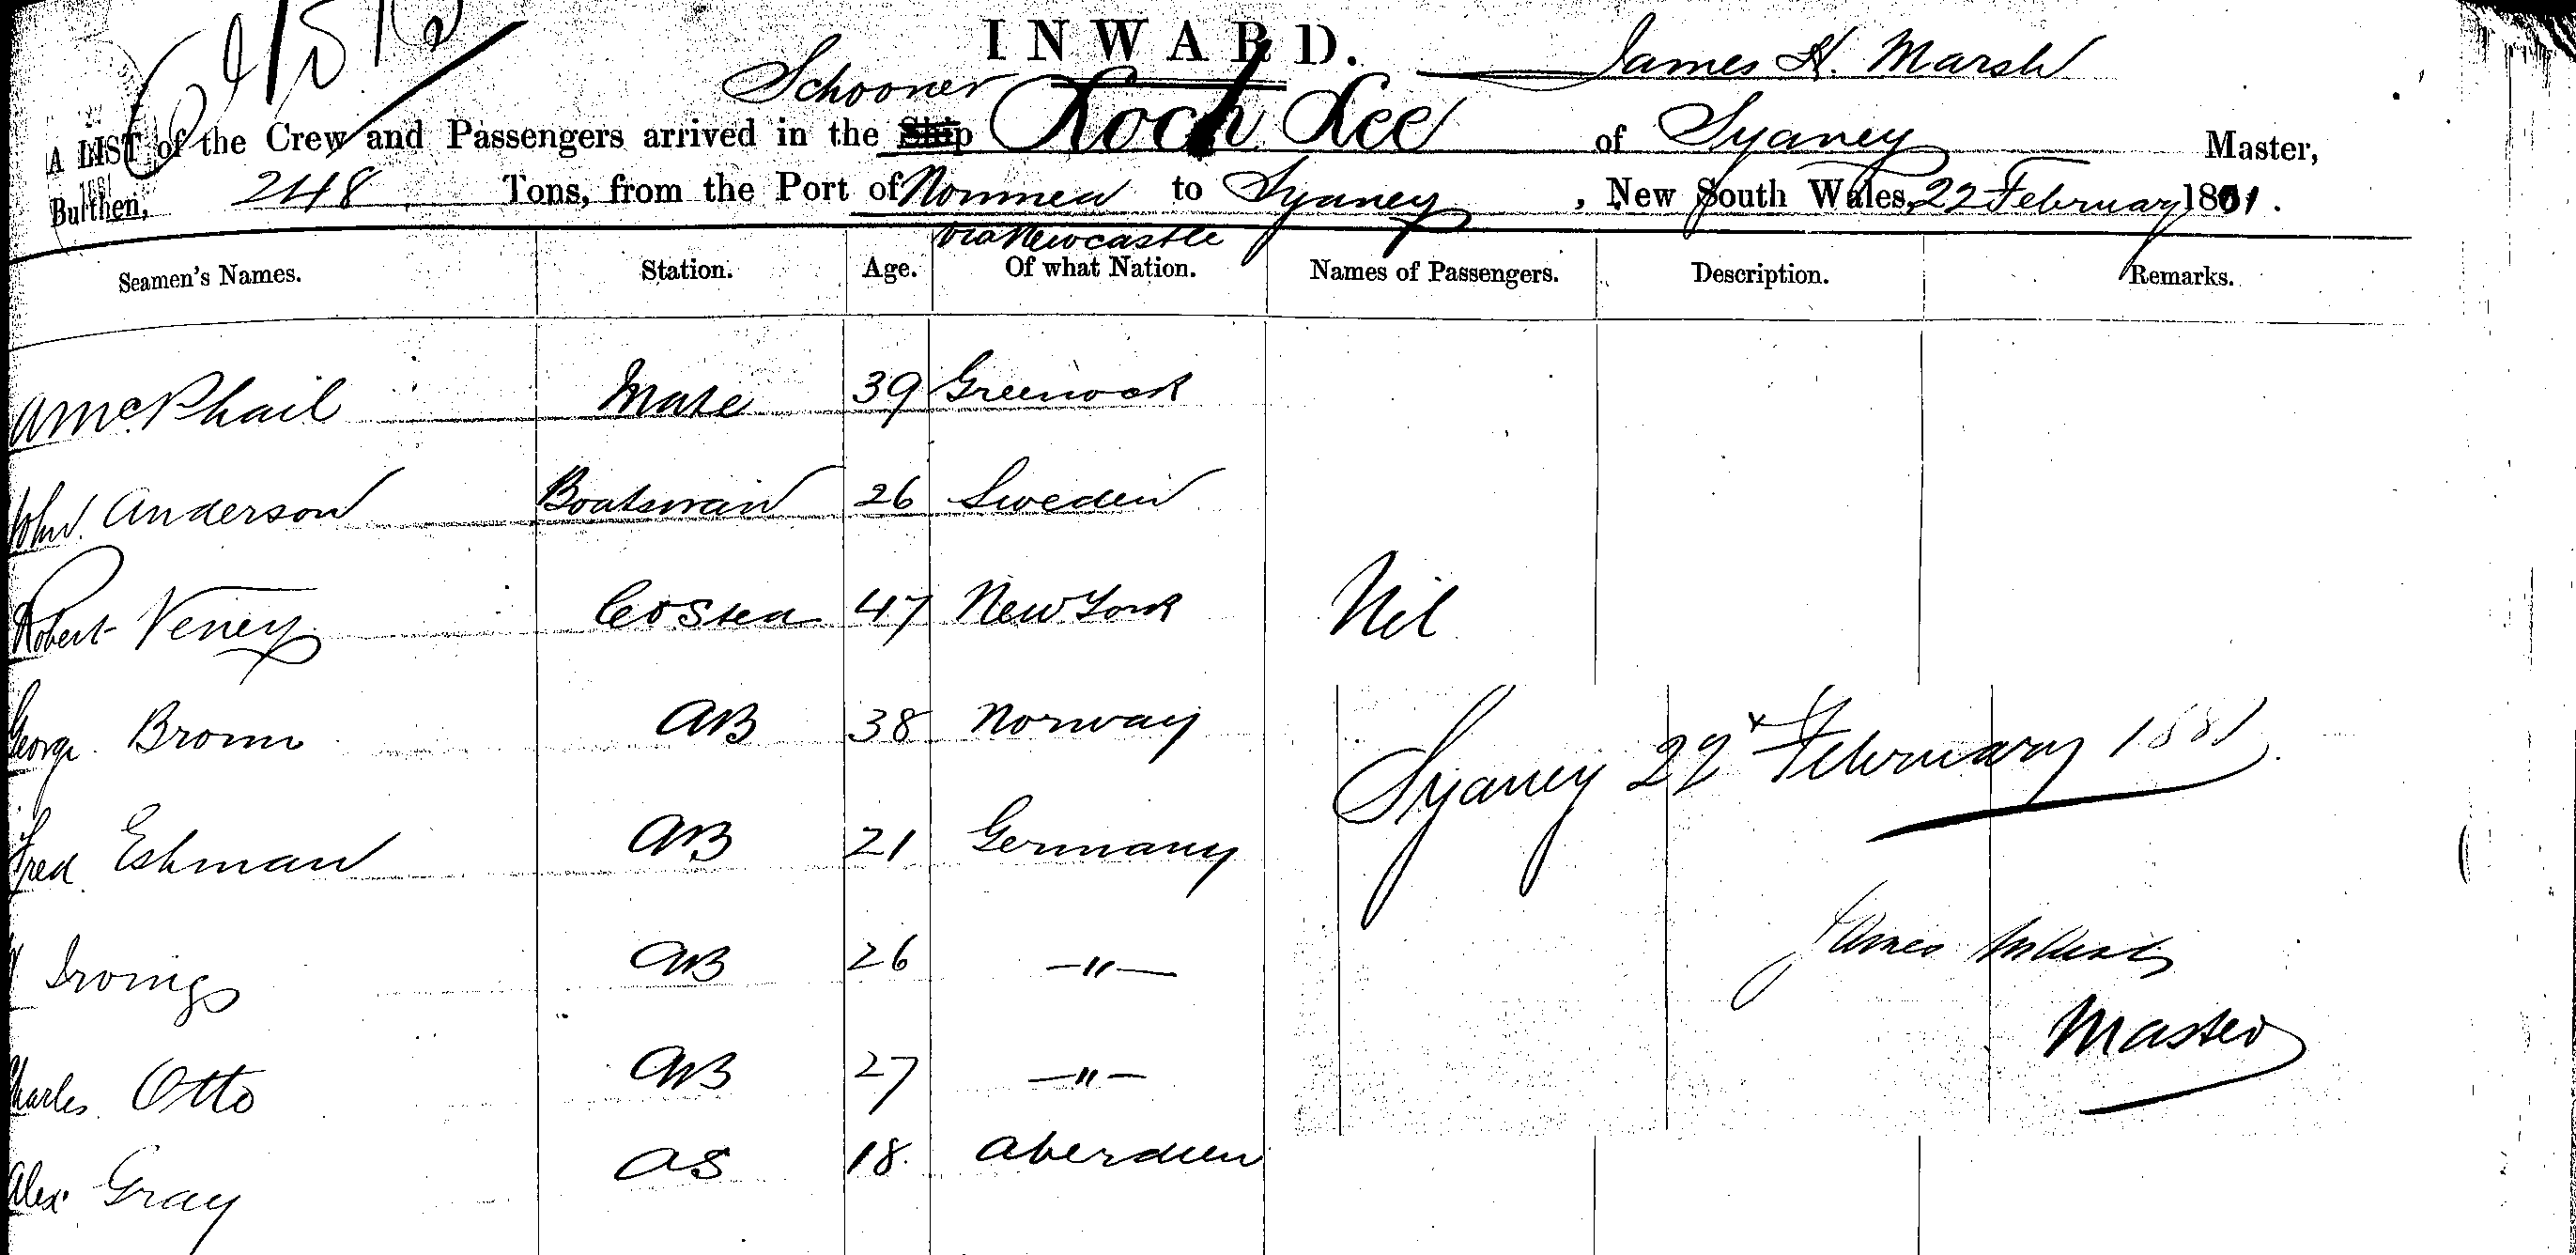 INWARD.
James H. Marsh
Schooner
A LIST of the Crew and Passengers arrived in the Ship Loch Lee of Sydney Master,
Burthen, 248 Tons, from the Port of Noumea to Sydney, New South Wales, 22 February 1881.
via Newcastle
Seamen's Names. Station. Age. Of what Nation. Names of Passengers. Description. Remarks.
A McPhail Mate 39 Greenock
John Anderson Boatswain 26 Sweden
Robert Veney Co Stea 47 New York Nil
George Brown AB 38 Norway
Sydney 22 February 1881
Fred Eshman AB 21 Germany
Irvings AB 26 —"—
James Marsh
Master
Charles Otto AB 27 —"—
Alex Gray OS 18 Aberdeen